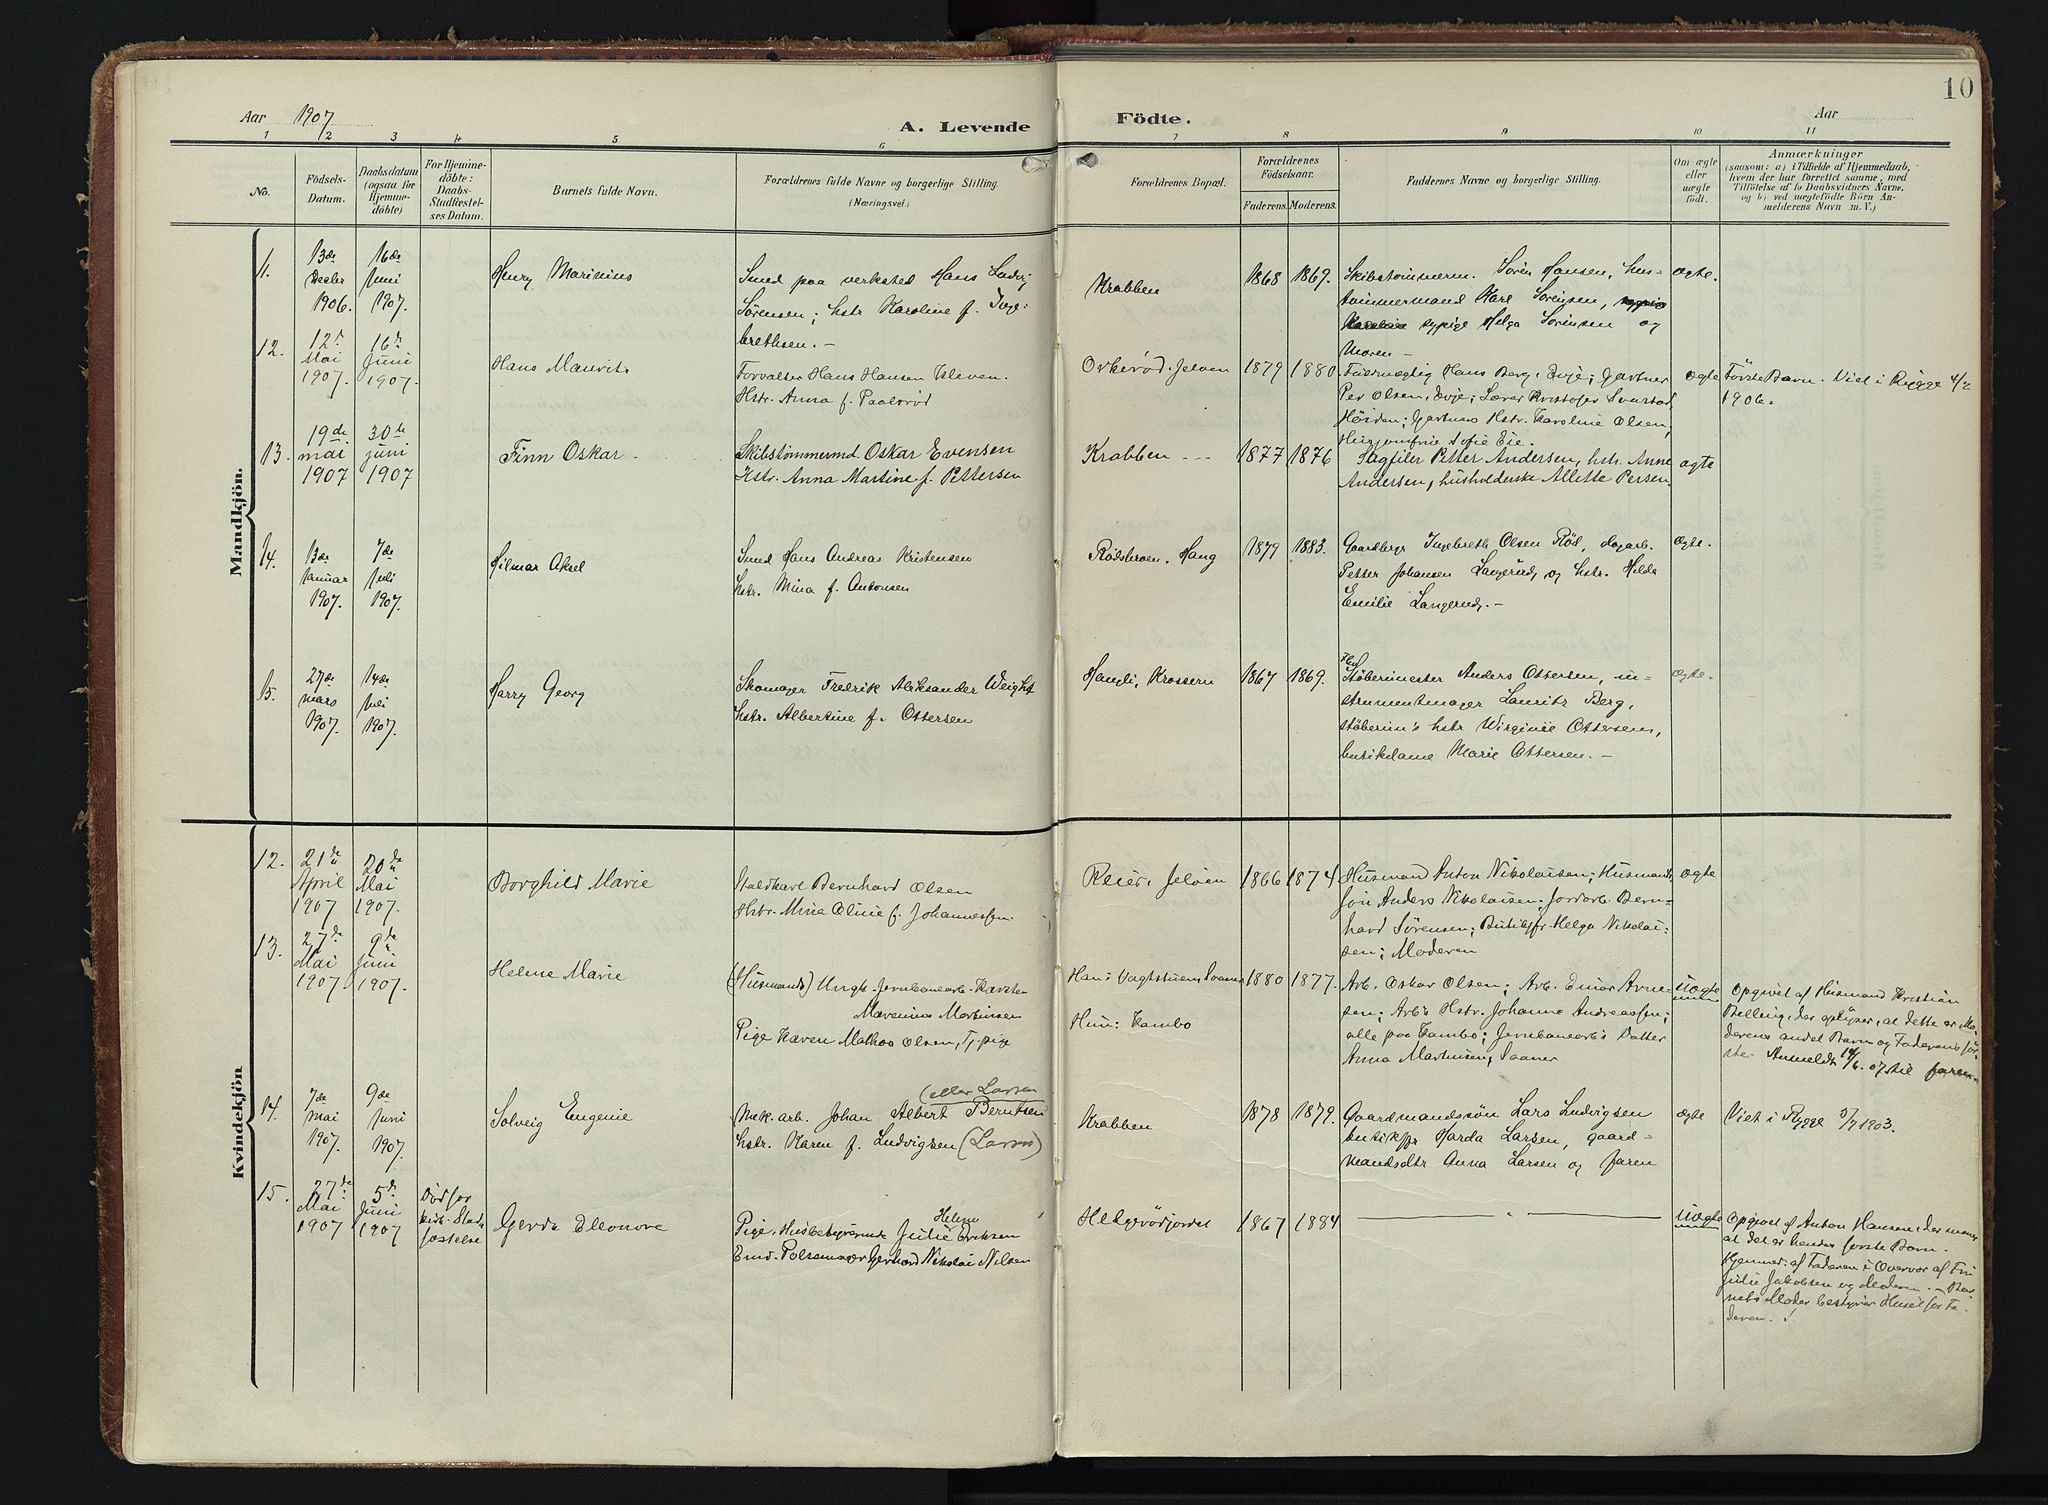 10
Aar 1907
A. Levende
Födte.
Aar
1 2 3 4 5 6 7 8 9 10 11
No.
Födsels-
Datum.
Daabsdatum
(ogsaa for
Hjemme-
döbte)
For Hjemme-
döbte:
Daabs-
Stadfæstel-
ses Datum.
Barnets fulde Navn.
Forældrenes fulde Navne og borgerlige Stilling.
(Næringsvei.)
Forældrenes Bopæl.
Forældrenes
Födselsaar.
Faderens. Moderens.
Faddernes Navne og borgerlige Stilling.
Om ægte
eller
uægte
födt.
Anmærkninger
(saasom: a) i Tilfælde af Hjemmedaab,
hvem der har forrettet samme, med
Tilföielse af to Daabsvidners Navne,
og b) ved uægtefödte Börn An-
melderens Navn m. V.)
Mandkjön.
11.
13de
Decbr
1906.
16de
Juni
1907.
Henry Marinius
Smed paa verksted Hans Ludv.
Sørensen; hstr Karoline f. Inge-
brethsen. -
Krabben
1868
1869.
Skibstömmerm. Sören Hansen, hus-
tømmermand Karl Sörensen,
sypige Helga Sørensen og
Moren -
ægte.
12.
12te
Mai
1907.
16de
Juni
1907.
Hans Mauritz
Forvalter Hans Hansen
Hstr. Anna f. Paalsröd
Orkeröd. Jelöen
1879
1880.
Hans Berg, Evje; Gartner
Per Olsen, Evje; Lærer Kristofer
Höiden; Gartners Hstr. Karoline Olsen;
Husjomfru Sofie Eie.
ægte
Förste Barn. Viet i Rygge 4/2
1906.
13.
19de
mai
1907
30te
juni
1907
Finn Oskar
Skibstömmermd. Oskar Evensen
Hstr. Anna Martine f. Pettersen
Krabben
1877
1876
Sagfiler Petter Andersen, hstr. Anne
Andersen, husholderske Allette Persen
ægte
14.
13de
Januar
1907.
7de
Juli
1907.
Hilmar Aksel
Smed Hans Andreas Kristensen
hstr. Mina f. Antonsen
Rödsbroen, Haug
1879
1883.
Gaardbrgr Ingebreth Olsen Röd, dagarb.
Petter Johansen Langerud, og hstr. Hilda
Emilie Langerud. -
ægte.
15.
27de
mars
1907.
14de
Juli
1907.
Harry Georg
Skomager Fredrik Aleksander Weighst
hstr. Albertine f. Ottersen
Haugli, Krossern
1867
1869.
Støberimester Anders Ottersen, in-
strumentmager Lauritz Berg,
støberim's hstr Wirginie Ottersen,
butikdame Marie Ottersen. -
ægte.
Kvindekjön
12.
21de
April
1907
20de
Mai
1907.
Borghild Marie
Staldkarl Bernhard Olsen
Hstr. Mina Oline f. Johannessen.
Reier, Jelöen
1866
1874
Husmand Anton Nikolaisen; Husmands-
sön Anders Nikolaisen. Jordarb. Bern-
hard Sørensen; Butikfr. Helga Nikolai-
sen; Moderen
ægte
13.
27de
Mai
1907
9de
Juni
1907.
Helene Marie
(Husmands) Ungk. Jernbanearb. Karsten
Marenius Martinsen
Pige Karen Mathea Olsen, Tj. pige
Han: Vagtstuen, Saaner
Hun: Kambo
1880
1877.
Arb. Oskar Olsen; Arb. Einar Arne-
sen; Arb's Hstr. Johanne Andreassen;
alle paa Kambo; Jernbanearb's Datter
Anna Martinsen, Saaner
uægte
Opgivet af Husmand Kristian
Belling, der oplyser, at dette er Mo-
derens andet Barn og Faderens för-
ste. Anmeldt 14/6. 07 til faren.
14.
7de
mai
1907.
9de
Juni
1907.
Solveig Eugenie
(eller Larsen
Mek. arb. Johan Albert Berntsen
hstr. Karen f. Ludvigsen (Larsen)
Krabben
1878
1879.
Gaardmandssön Lars Ludvigsen
butikjfr Harda Larsen, gaard-
mandsdtr Anna Larsen og faren
ægte
Viet i Rygge 5/7 1903.
15.
27de
Mai
1907
5te
Juni
1907
Död før
kirk. Stad-
fæstelse
Gerda Eleonore
Helene
Pige, Husbestyrerinde Julie Eriksen
Emd. Pölsemager Gerhard Nikolai Nilsen
Helgerödjordet
1867
1884
uægte
Opgivet af Anton Hansen, der mener
at det er hendes første Barn.
Hjemmed. af Faderen i Overvær af Fru
Julie Jakobsen og Moderen. - Bar-
nets Moder bestyrer Huset for Fa-
deren.!